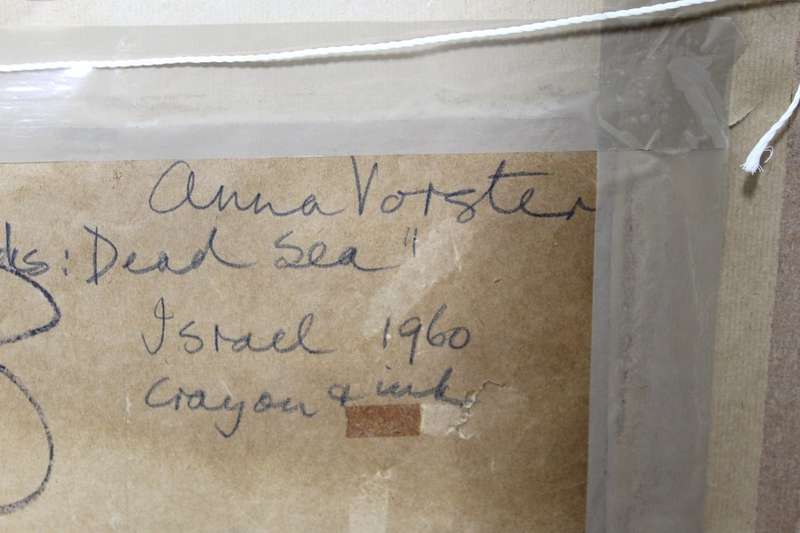 Anna Vorster
ks: Dead Sea"
Israel 1960
crayon & ink